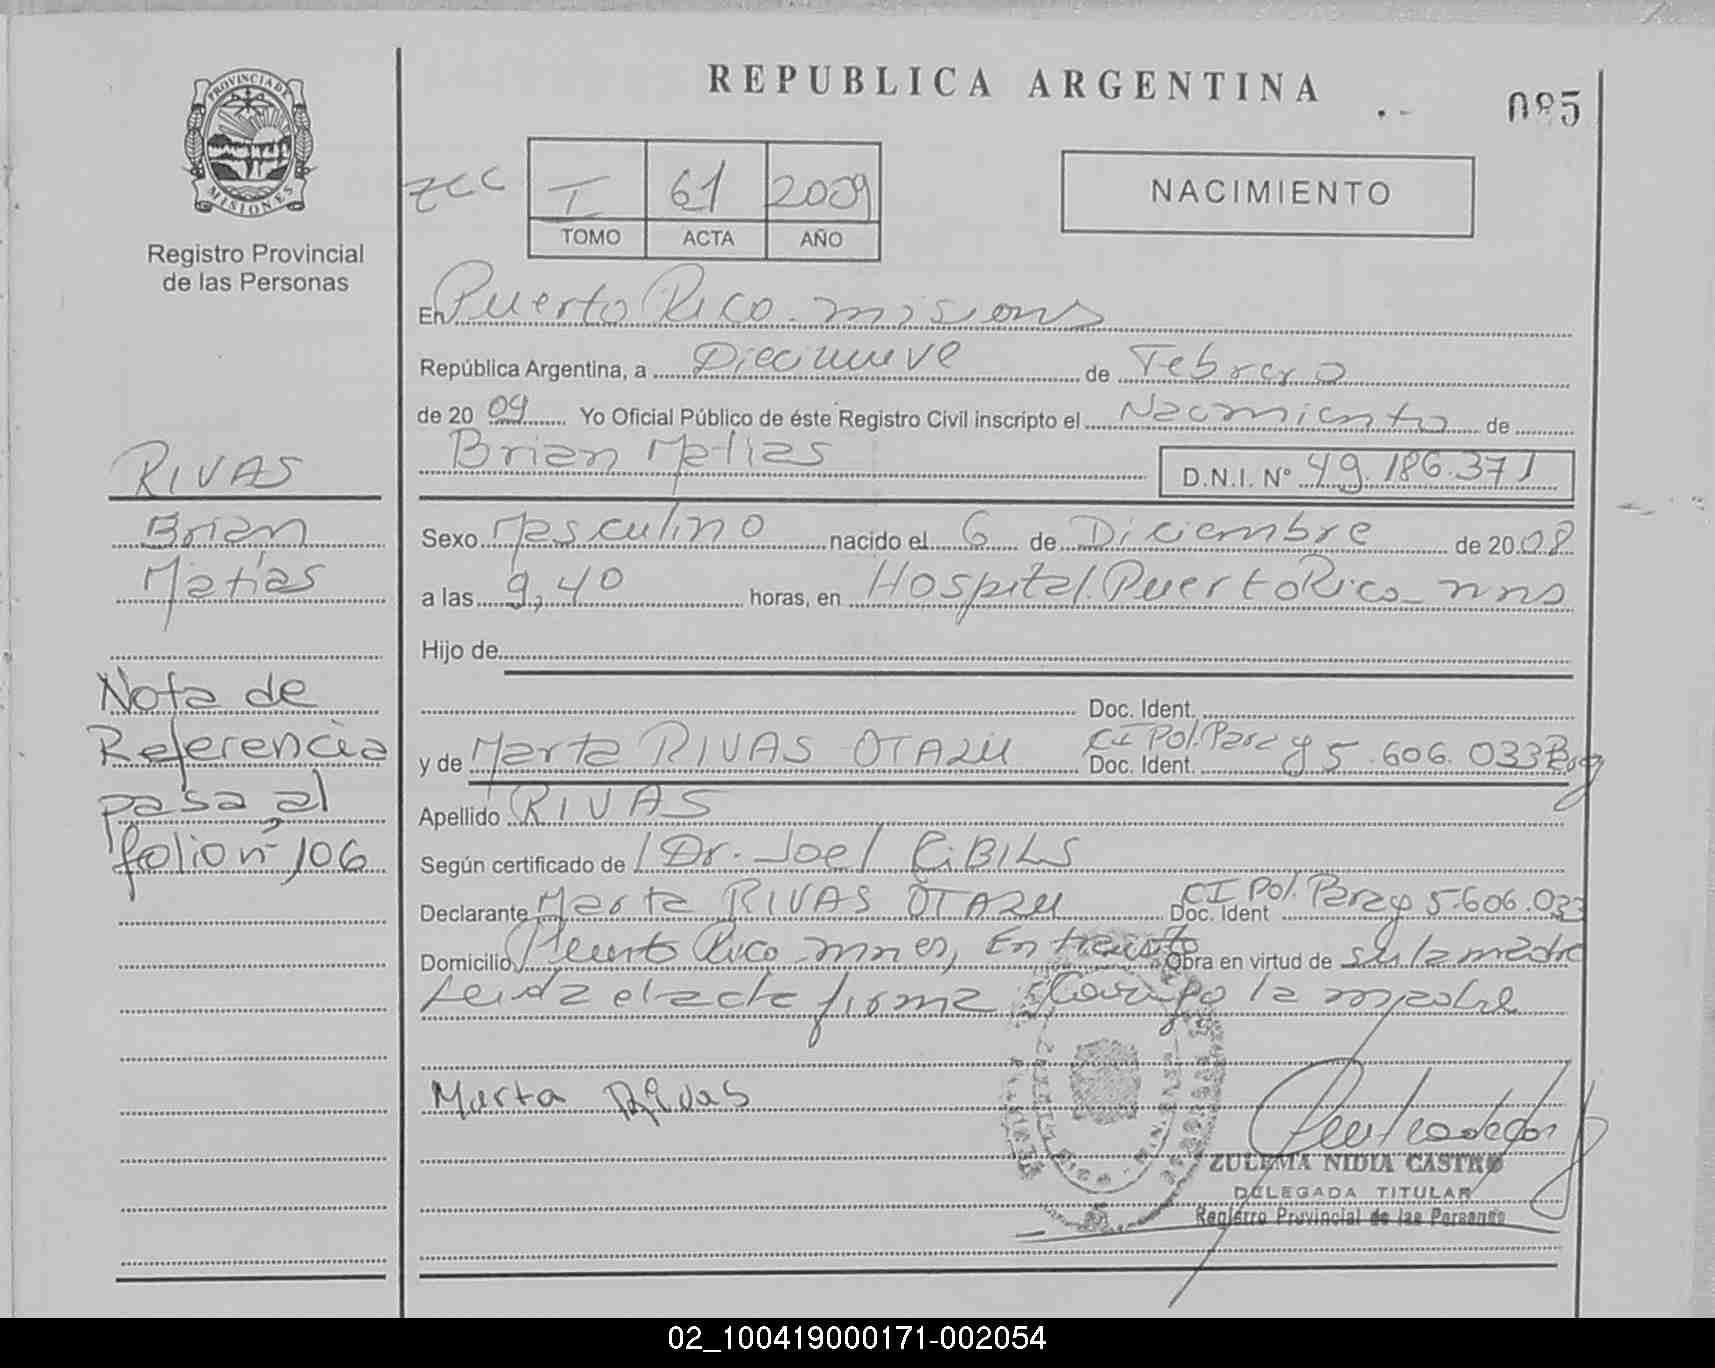 REPUBLICA ARGENTINA
085
PROVINCIA DE MISIONES
Registro Provincial
de las Personas
ZCC
I 61 2009
TOMO ACTA AÑO
NACIMIENTO
En Puerto Rico - Misiones
República Argentina, a Diecinueve de Febrero
de 2009 Yo Oficial Público de éste Registro Civil inscripto el Nacimiento de
Brian Matias D.N.I. Nº 49.186.371
RIVAS
Brian
Matías
Nota de
Referencia
pasa al
folio nº 106
Sexo Masculino nacido el 6 de Diciembre de 2008
a las 9,40 horas, en Hospital. Puerto Rico - mns
Hijo de
Doc. Ident.
y de Marta RIVAS OTAZU Doc. Ident. CI Pol. Paragy 5.606.033
Apellido RIVAS
Según certificado de Dr. Joel CIBILS
Declarante Marta RIVAS OTAZU Doc. Ident CI Pol. Paragy 5.606.033
Domicilio Puerto Rico mnes, En transito Obra en virtud de ser la madre
Leida el acta firma conmigo la madre
Marta Rivas
ZULEMA NIDIA CASTRO
DELEGADA TITULAR
Registro Provincial de las Personas
02_100419000171-002054